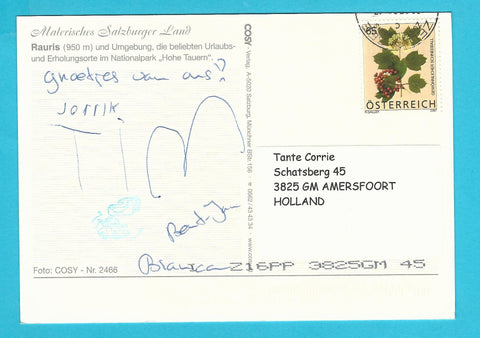 Malerisches Salzburger Land
Rauris (950 m) und Umgebung, die beliebten Urlaubs-
und Erholungsorte im Nationalpark „Hohe Tauern".
Groetjes van ons!
JORRIK
TIM
Bert-Jan
Bianca
Foto: COSY - Nr. 2466
COSY Verlag, A-5020 Salzburg, Münchner BStr. 156 ☎ 0662 / 43 43 34
65
GEWÖHNLICHER SCHNEEBALL
ÖSTERREICH
2007
Tante Corrie
Schatsberg 45
3825 GM AMERSFOORT
HOLLAND
216PP 3825GM 45